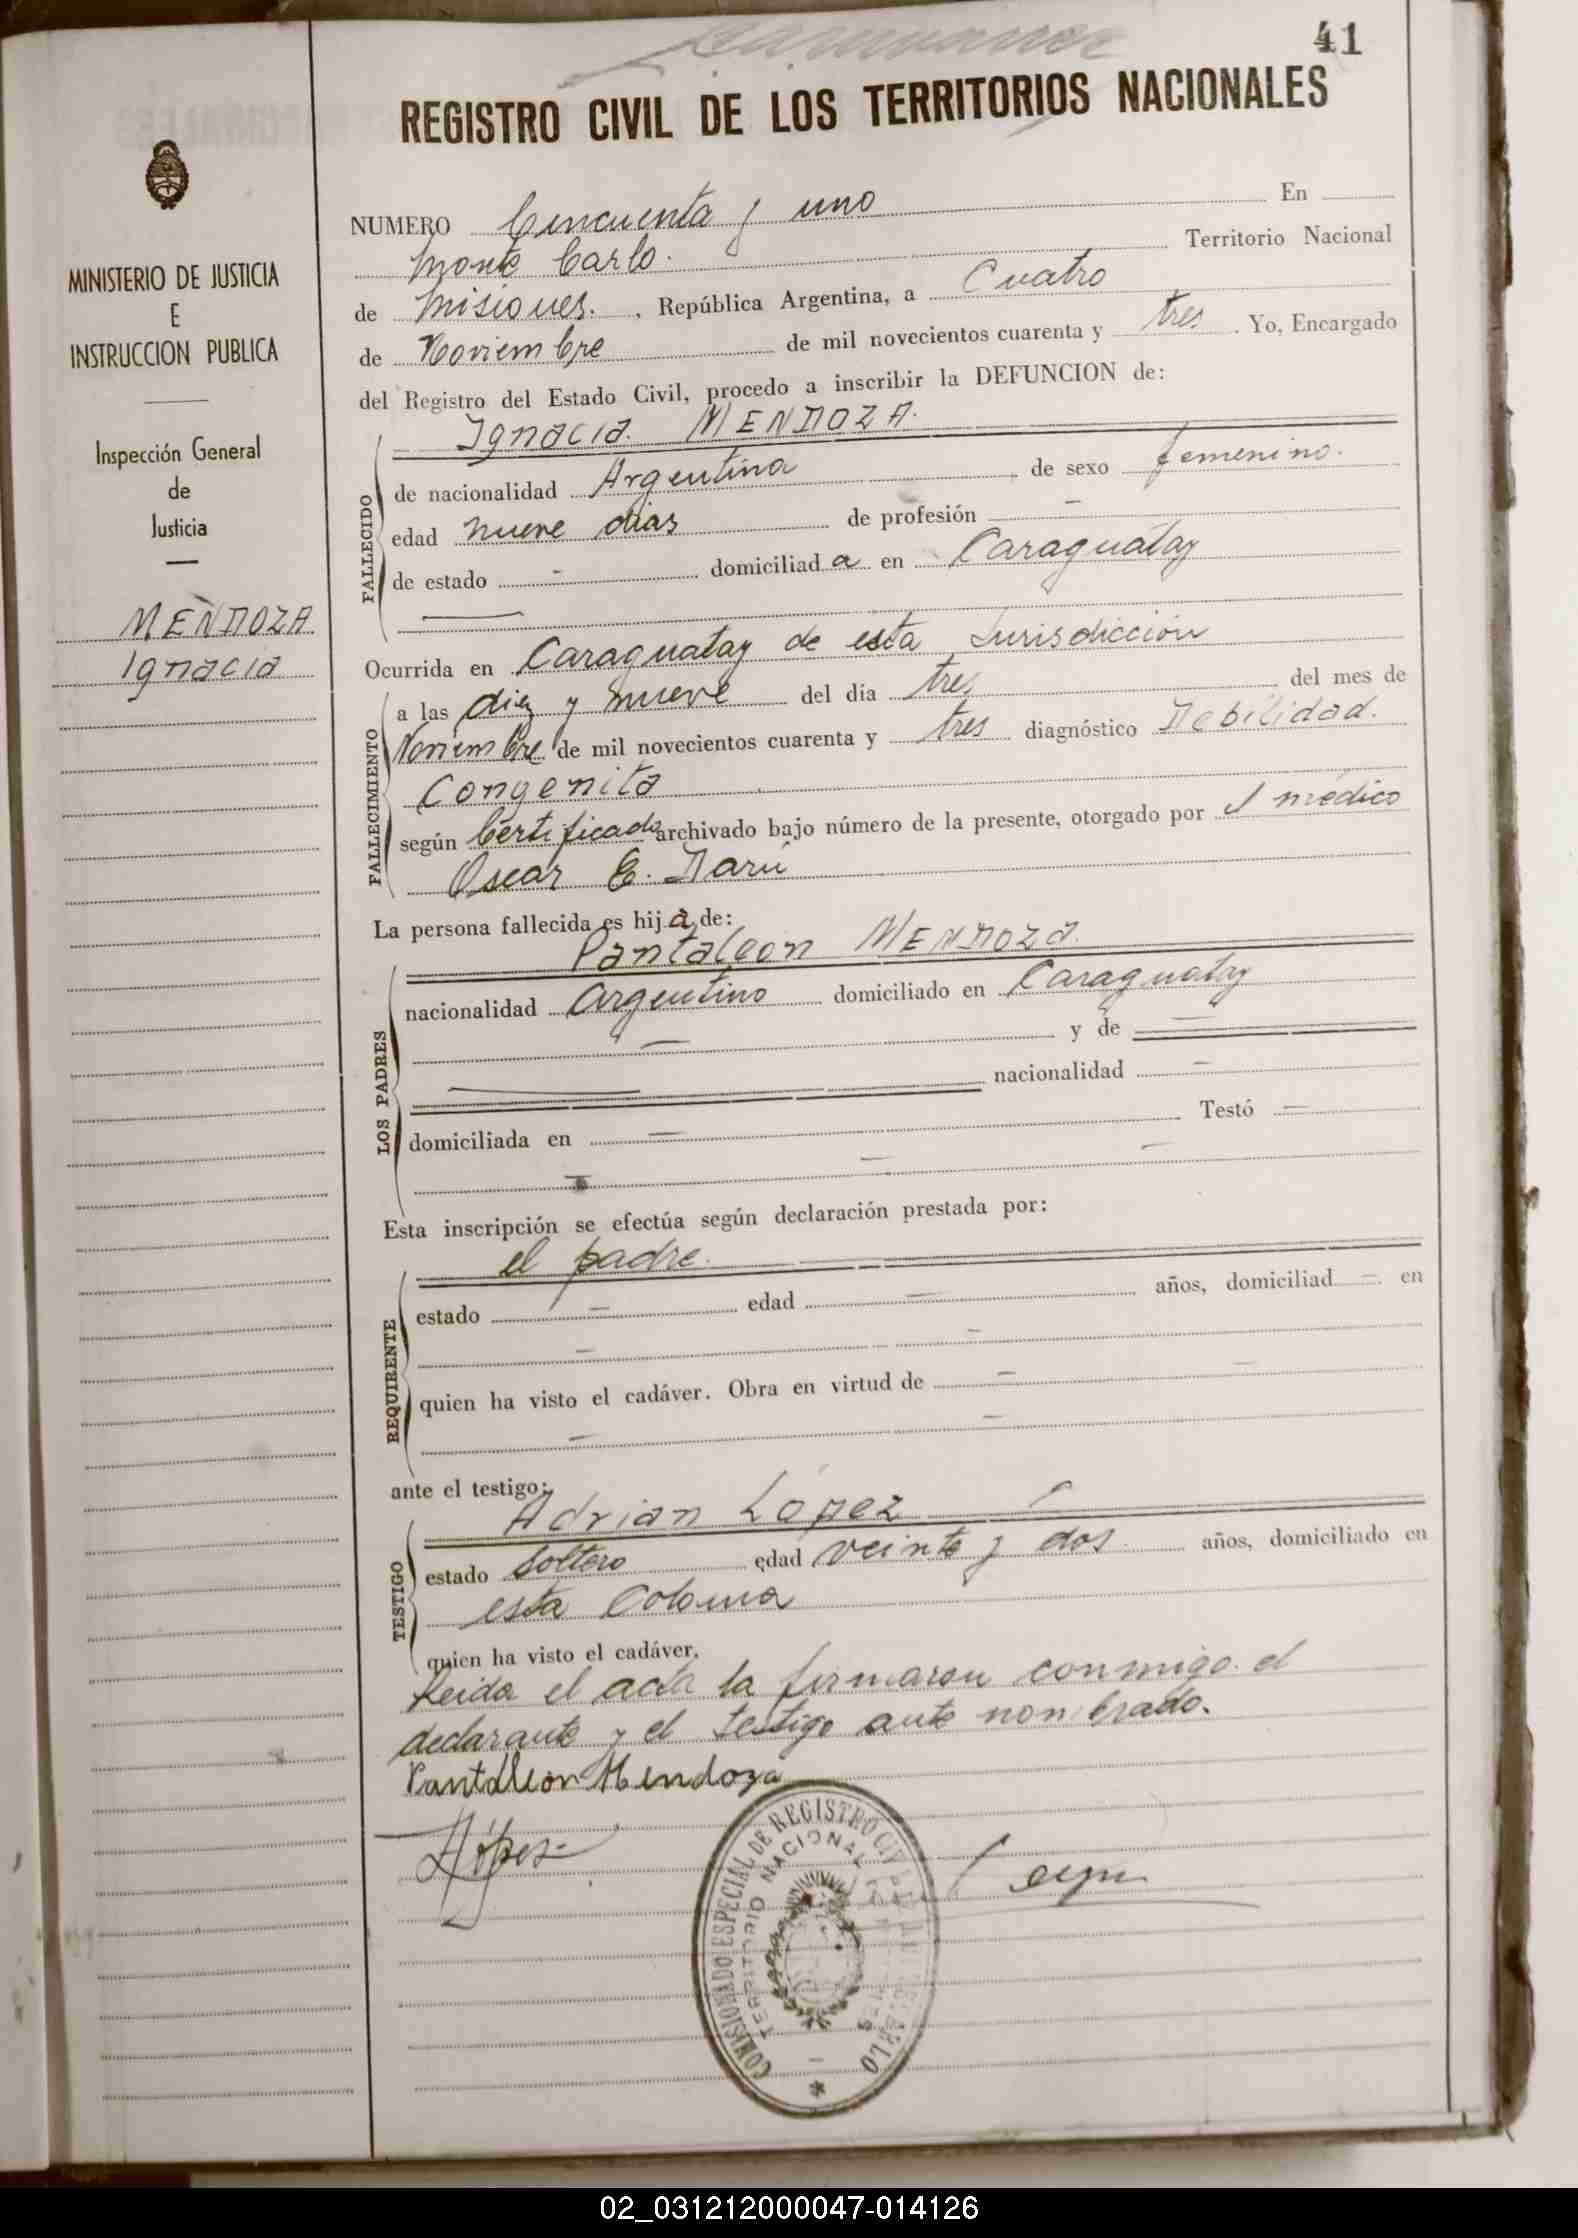 41
REGISTRO CIVIL DE LOS TERRITORIOS NACIONALES
MINISTERIO DE JUSTICIA
E
INSTRUCCION PUBLICA
Inspección General
de
Justicia
MENDOZA
Ignacia
NUMERO Cincuenta y uno En
Monte Carlo. Territorio Nacional
de Misiones. , República Argentina, a Cuatro
de Noviembre de mil novecientos cuarenta y tres . Yo, Encargado
del Registro del Estado Civil, procedo a inscribir la DEFUNCION de:
Ignacia MENDOZA.
FALLECIDO
de nacionalidad Argentina de sexo femenino.
edad nueve dias de profesión —
de estado - domiciliad a en Caraguatay
Ocurrida en Caraguatay de esta Jurisdicción
FALLECIMIENTO
a las diez y nueve del día tres del mes de
Noviembre de mil novecientos cuarenta y tres diagnóstico Debilidad.
Congenita
según Certificado archivado bajo número de la presente, otorgado por el médico
Oscar E. Darú
La persona fallecida es hija de:
Pantaleón MENDOZA
LOS PADRES
nacionalidad Argentino domiciliado en Caraguatay
— y de —
nacionalidad —
domiciliada en — Testó —
Esta inscripción se efectúa según declaración prestada por:
el padre.
REQUIRENTE
estado — edad — años, domiciliad — en
quien ha visto el cadáver. Obra en virtud de —
ante el testigo:
Adrian López
TESTIGO
estado Soltero edad veinte y dos años, domiciliado en
esta Colonia
quien ha visto el cadáver.
Leida el acta la firmaron conmigo el
declarante y el testigo ante nombrado.
Pantaleon Mendoza
López
COMISIONADO ESPECIAL DE REGISTRO CIVIL
TERRITORIO NACIONAL
02_031212000047-014126